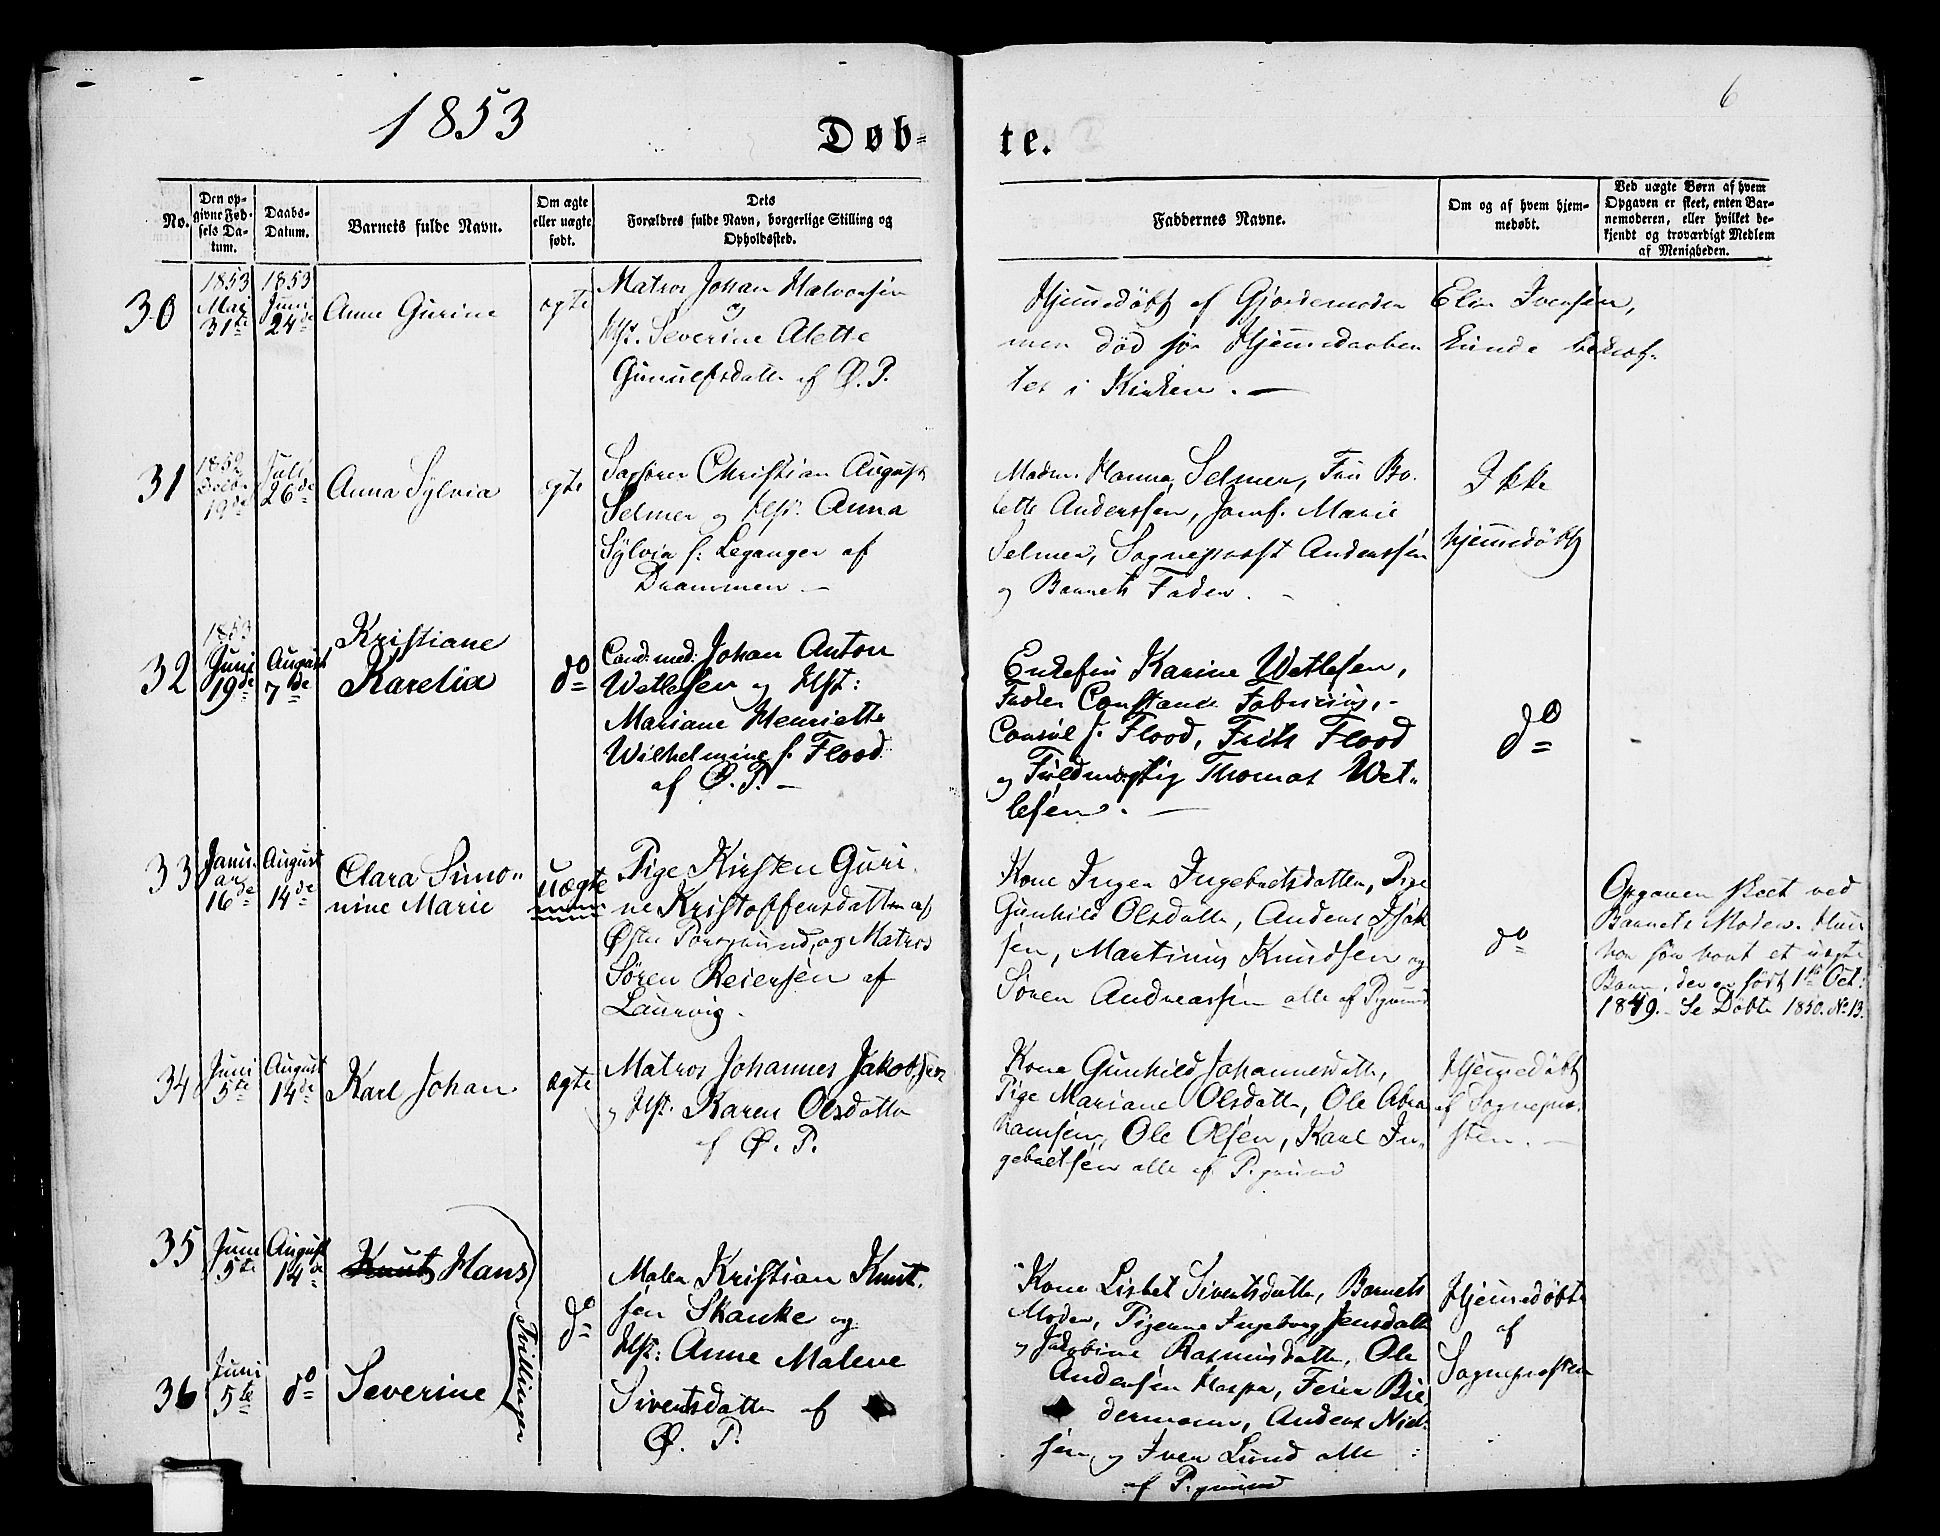 1853
6
Døb-
te.
No.
Den op-
givne Fød-
sels Da-
tum.
Daabs-
Datum.
Barnets fulde Navn.
Om ægte
eller uægte
født.
Dets
Forældres fulde Navn, borgerlige Stilling og
Opholdssted.
Faddernes Navne.
Om og af hvem hjem-
medøbt.
Ved uægte Børn af hvem
Opgaven er skeet, enten Bar-
nemoderen, eller hvilket be-
kjendt og troværdigt Medlem
af Menigheden.
30
1853
Mai
31te
1853
Juni
24de
Anne Gurine
ægte
Matros Johan Halvorsen
og
Hst. Severine Alette
Gunulfsdatter af Ø. P.
Hjemmedøbt af Gjordemoder Elin Iversen,
men død før Hjemmedaaben kunde bekræf-
tes i Kirken. —
31
1852
19de
Juli
26de
Anna Sylvia
ægte
Sagfører Christian August
Selmer og Hst. Anna
Sylvia f: Leganger af
Drammen —
Madm. Hanna Selmer, Fru Bo-
lette Anderssen, Jomf. Marie
Selmer, Sogneprest Anderssen
og Barnets Fader. -
Ikke
hjemmedøbt
32
1853
Juni
19de
August
7de
Kristiane
Karelia
do
Cand: med: Johan Anton
Wetlesen og Hst:
Mariane Henriette
Wilhelmine f. Flood
af Ø. P. —
Enkefru Karine Wetlesen,
Frøken Constance Fabricius, -
Consul J. Flood, Frits Flood
og Fuldmægtig Thomas Wet-
lesen. —
do
33
Janu-
ar
16de
August
14de
Clara Simo-
nine Marie
uægte
Pige Kirsten Guri-
ne Kristoffersdatter af
Østre Porsgrund, og Matros
Søren Reiersen af
Laurvig.
Kone Inger Ingebretsdatter, Pige
Gunhild Olsdatter, Anders Isak-
sen, Martinus Knudsen og
Søren Andreassen alle af P.grund
do
Opgaven skeet ved
Barnets Moder. Hun
har før havt et uægte
Barn, der er født 1ste Oct:
1849. — Se Døbte 1850. No 13.
34
Juni
5te
August
14de
Karl Johan
ægte
Matros Johannes Jakobsen
og Hst. Karen Olsdatter
af Ø. P.
Kone Gunhild Johannesdatter,
Pige Mariane Olsdatter, Ole Abra-
hamsen, Ole Olsen, Karl In-
gebretsen alle af P.grund
Hjemmedøbt
af Sognepre-
sten. —
35
Juni
5te
August
14de
Knut Hans
Tvillinger
do
Maler Kristian Knut-
sen Skanke og
Hst: Anne Malene
Sivertsdatter af
Ø. P.
Kone Lisbet Sivertsdatter, Barnets
Moder, Pigerne Ingeborg Jensdatter
og Jakobine Rasmusdatter, Ole
Andersen Bie-
dermann, Anders Niel-
sen og Iver Lund alle
af P.grund
Hjemmedøbte
af
Sognepresten
36
Juni
5te
do
Severine